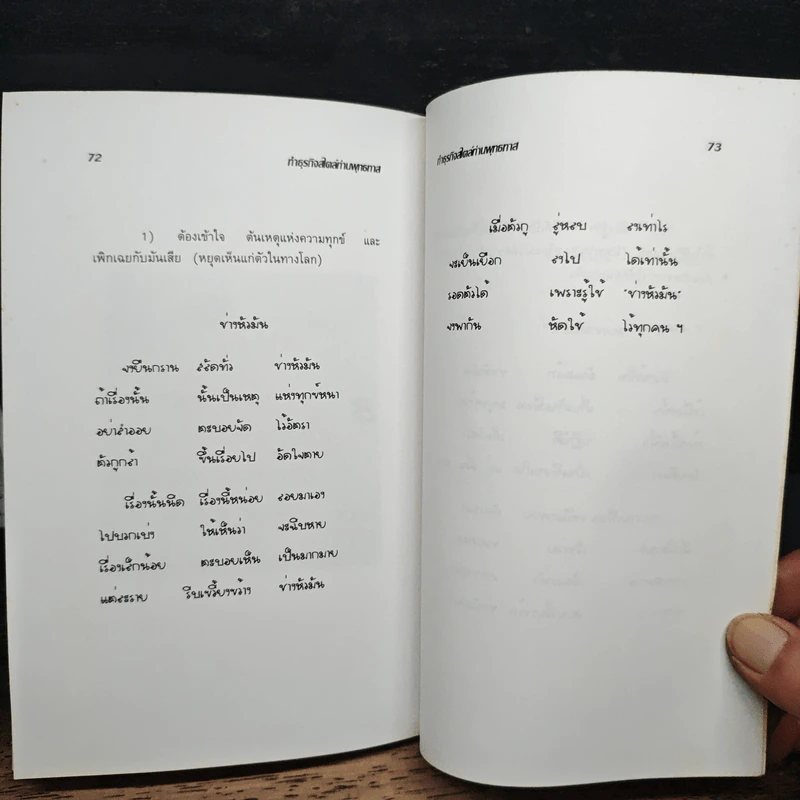 72
ทำธุรกิจสไตล์ท่านพุทธทาส
1) ต้องเข้าใจ ต้นเหตุแห่งความทุกข์ และ
เพิกเฉยกับมันเสีย (หยุดเห็นแก่ตัวในทางโลก)
ช่างหัวมัน
จงยืนกราน สลัดทั่ว ช่างหัวมัน
ถ้าเรื่องนั้น นั้นเป็นเหตุ แห่งทุกข์หนา
อย่าสำออย ตะบอยจัด ไว้อัตรา
ตัวกูกล้า ขึ้นเรื่อยไป อัดใจตาย
เรื่องนั้นนิด เรื่องนี้หน่อย ลอยมาเอง
ไปบวกเบ่ง ให้เห็นว่า จะฉิบหาย
เรื่องเล็กน้อย ตะบอยเห็น เป็นมากมาย
แต่ละราย รีบเขวี้ยงขว้าง ช่างหัวมัน
ทำธุรกิจสไตล์ท่านพุทธทาส
73
เมื่อตัวกู ลู่หลบ ลงเท่าไร
จะเย็นเยือก ลงไป ได้เท่านั้น
รอดตัวได้ เพราะรู้ใช้ "ช่างหัวมัน"
จงพากัน หัดใช้ ไว้ทุกคน ฯ